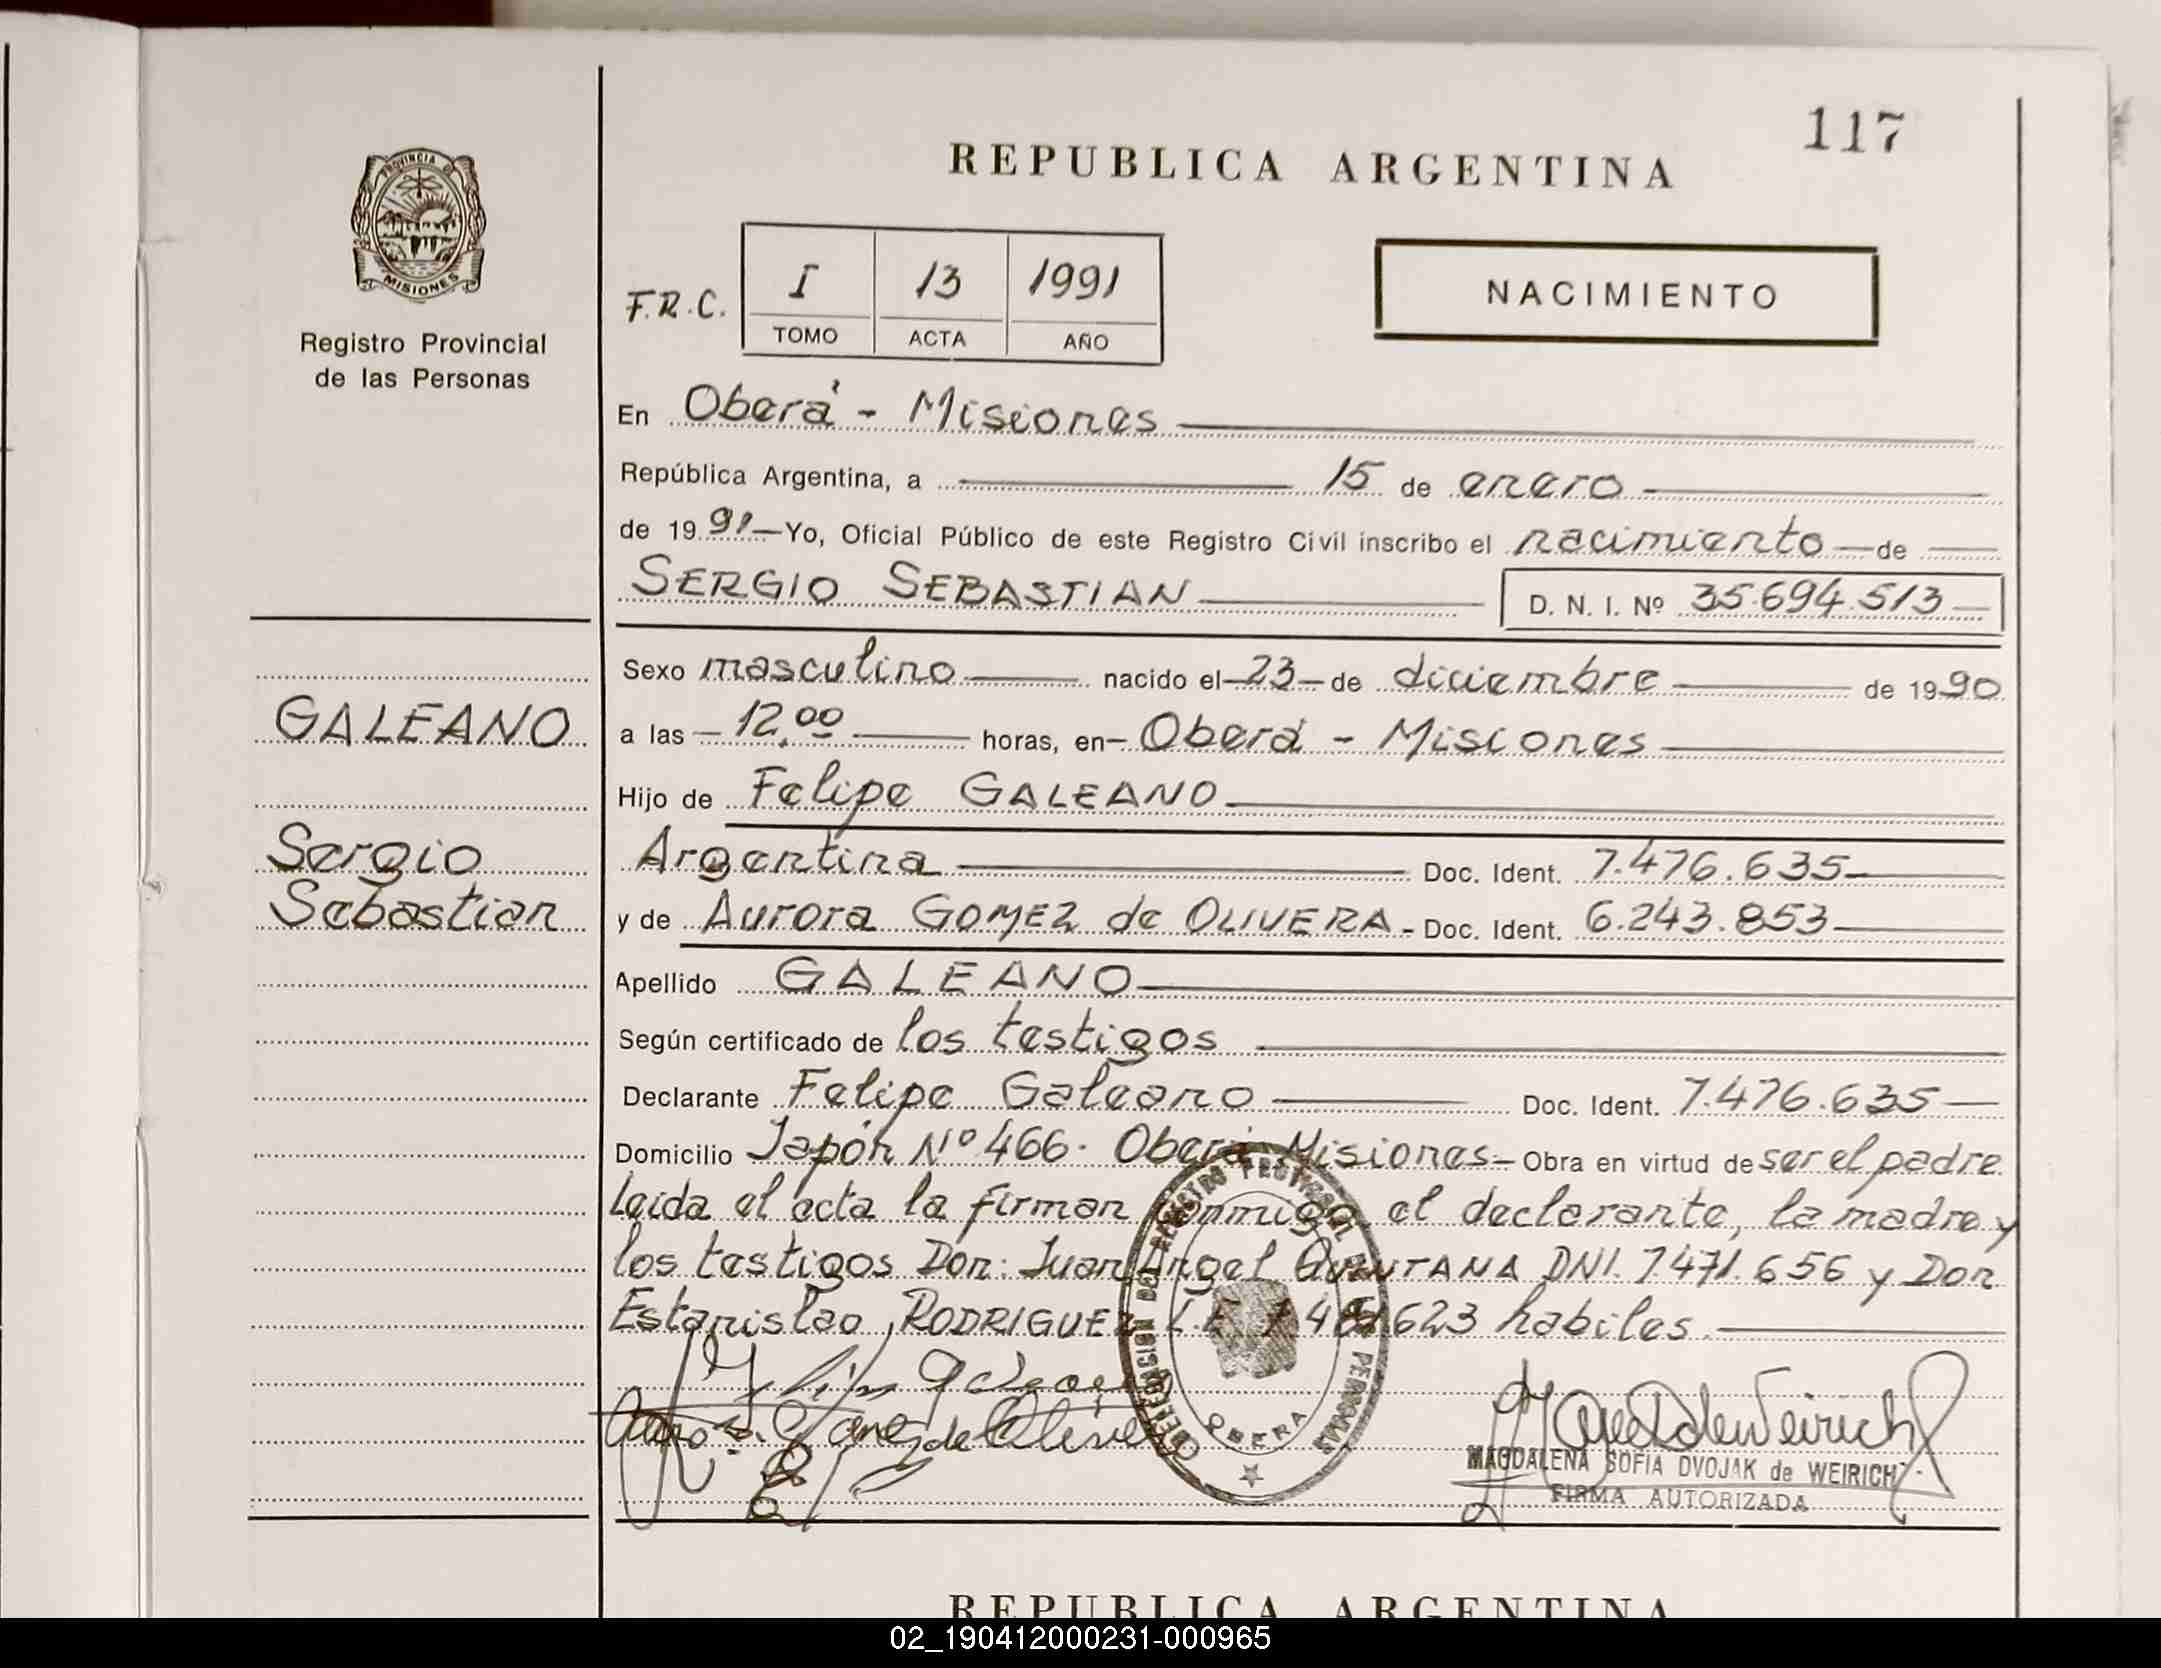 117
REPUBLICA ARGENTINA
PROVINCIA D
MISIONES
Registro Provincial
de las Personas
F.R.C.
I 13 1991
TOMO ACTA AÑO
NACIMIENTO
En Oberá - Misiones
República Argentina, a 15 de enero
de 1991 - Yo, Oficial Público de este Registro Civil inscribo el nacimiento - de
SERGIO SEBASTIAN D. N. I. Nº 35.694.513
Sexo masculino nacido el 23 de diciembre de 1990
GALEANO
a las 12,00 horas, en Oberá - Misiones
Hijo de Felipe GALEANO
Sergio
Argentina Doc. Ident. 7.476.635
Sebastian
y de Aurora GOMEZ de OLIVERA - Doc. Ident. 6.243.853
Apellido GALEANO
Según certificado de los testigos
Declarante Felipe Galeano Doc. Ident. 7.476.635
Domicilio Japón Nº 466. Oberá Misiones - Obra en virtud de ser el padre
Leída el acta la firman conmigo, el declarante, la madre y
los testigos Don: Juan Angel QUINTANA DNI. 7.471.656 y Don
Estanislao RODRIGUEZ L.E. 623 habiles.
DELEGACION DEL REGISTRO PROVINCIAL DE LAS PERSONAS
OBERA
MAGDALENA SOFIA DVOJAK de WEIRICH
FIRMA AUTORIZADA
REPUBLICA ARGENTINA
02_190412000231-000965